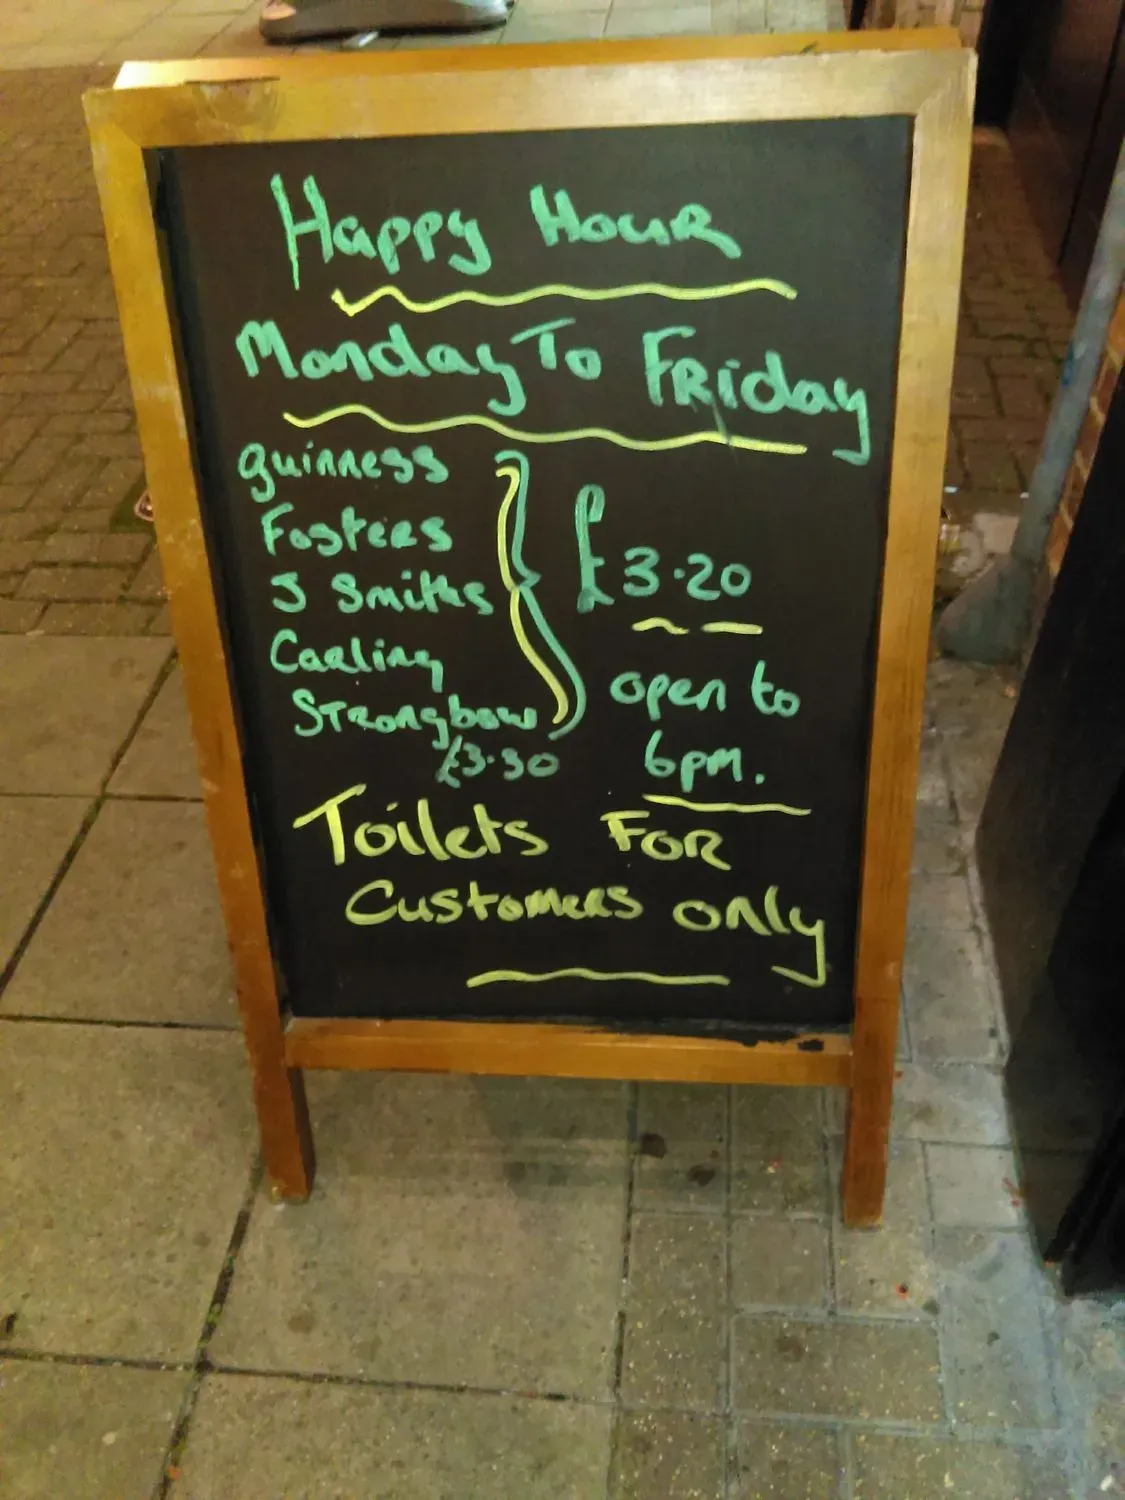 Happy Hour
Monday To Friday
guinness
Fosters
J Smiths
Carling
Strongbow
£3.30
£3.20
open to
6pm.
Toilets For
Customers only